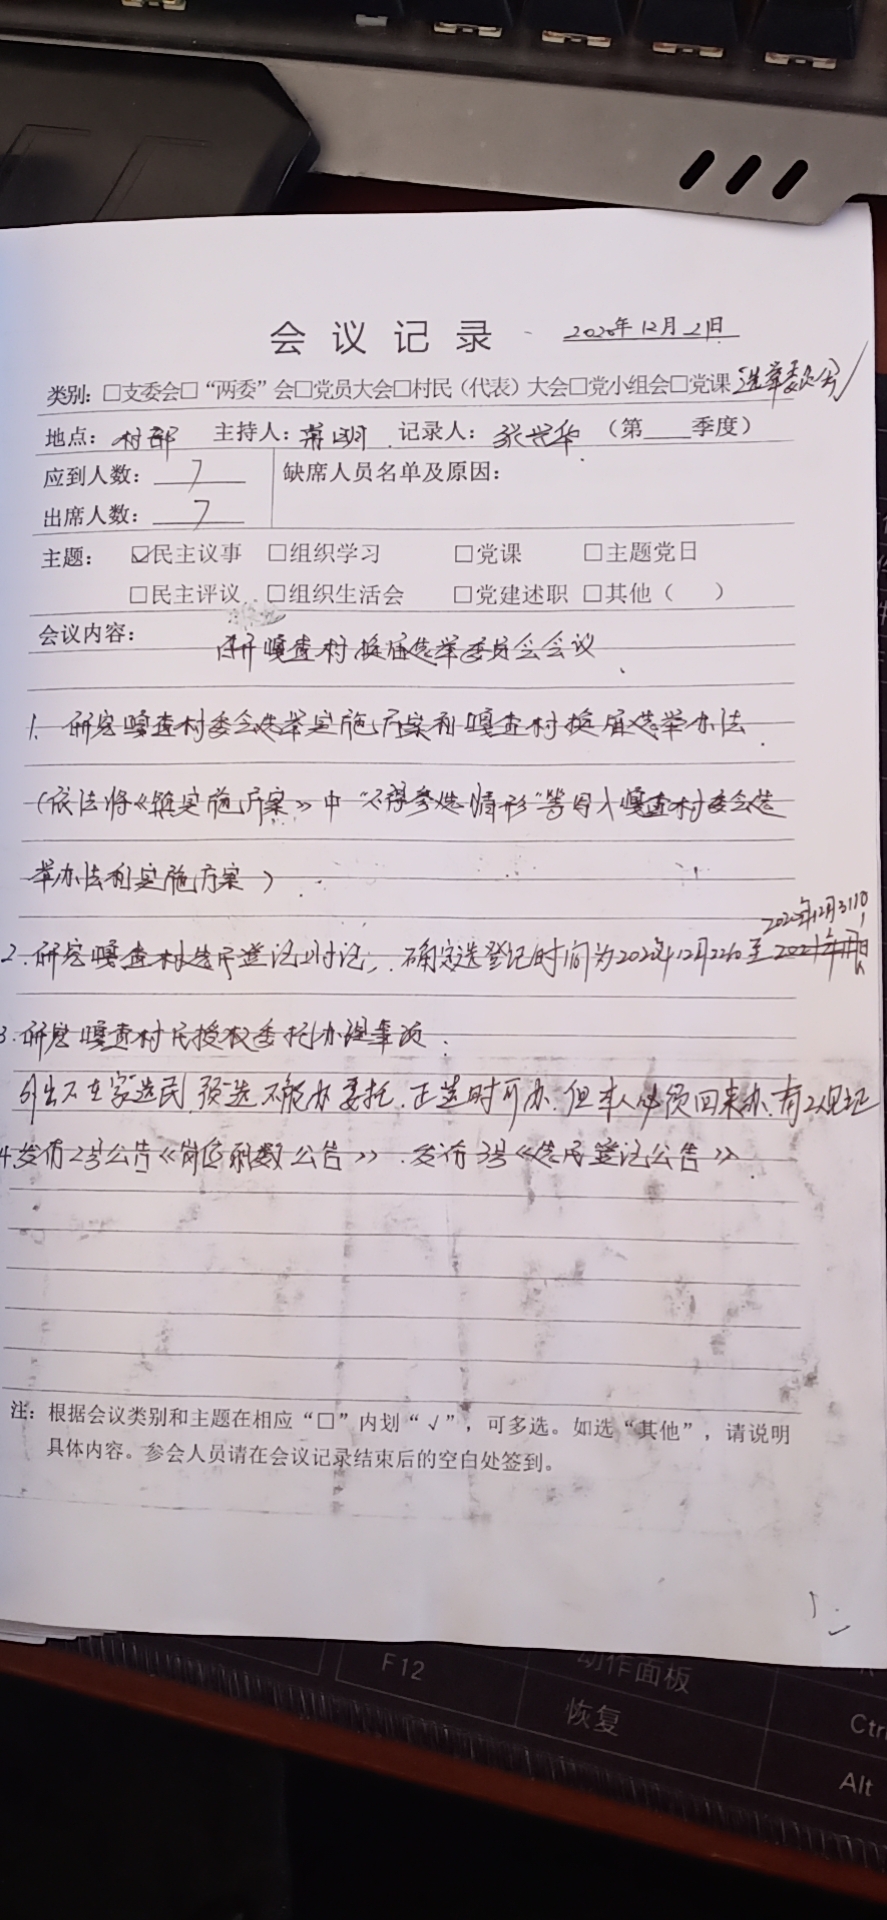 会议记录 2020年12月21日
类别：□支委会□“两委”会□党员大会□村民（代表）大会□党小组会□党课 选举委员会
地点：村部 主持人： 记录人：张兴华 （第 季度）
应到人数：7 缺席人员名单及原因：
出席人数：7
主题：☑民主议事 □组织学习 □党课 □主题党日
□民主评议 □组织生活会 □党建述职 □其他（ ）
会议内容：
召开嘎查村换届选举委员会会议
1. 研究嘎查村委会选举实施方案和嘎查村换届选举办法
（依法将《镇实施方案》中“不得参选情形”等写入嘎查村委会选
举办法和实施方案）
2020年12月31日
2. 研究嘎查村选民登记讨论，确定选登记时间为2020年12月22日至
3. 研究嘎查村民授权委托办理事项：
外出不在家选民，预选不能办委托，正选时可办，但本人必须回来办，有2人见证
4.发布2号公告《岗位职数公告》，发布3号《选民登记公告》
注：根据会议类别和主题在相应“□”内划“√”，可多选。如选“其他”，请说明
具体内容。参会人员请在会议记录结束后的空白处签到。
F12
动作面板
恢复
Ctrl
Alt